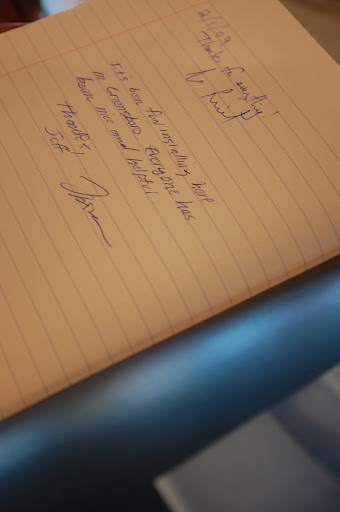 2/1/09
Thanks for everything!
It's been fun installing here
in Greensboro. Everyone has
been nice and helpful
Thanks!
Jeff